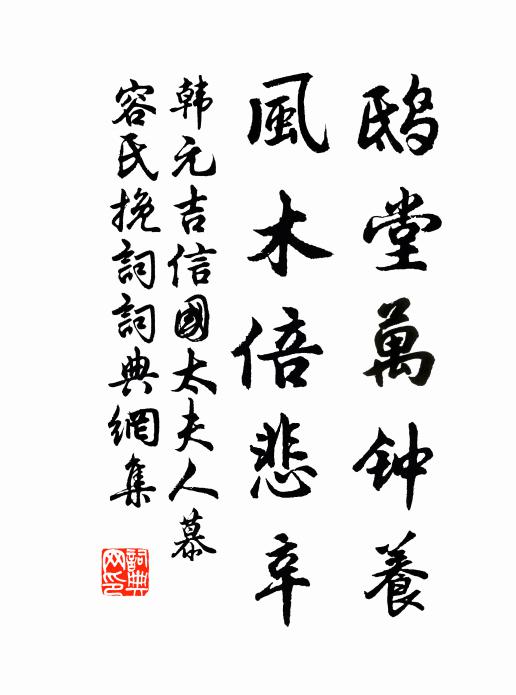 鸱堂萬钟養
風木倍悲辛
韩元吉信國太夫人慕
容氏挽詞詞典網集
詞典网印